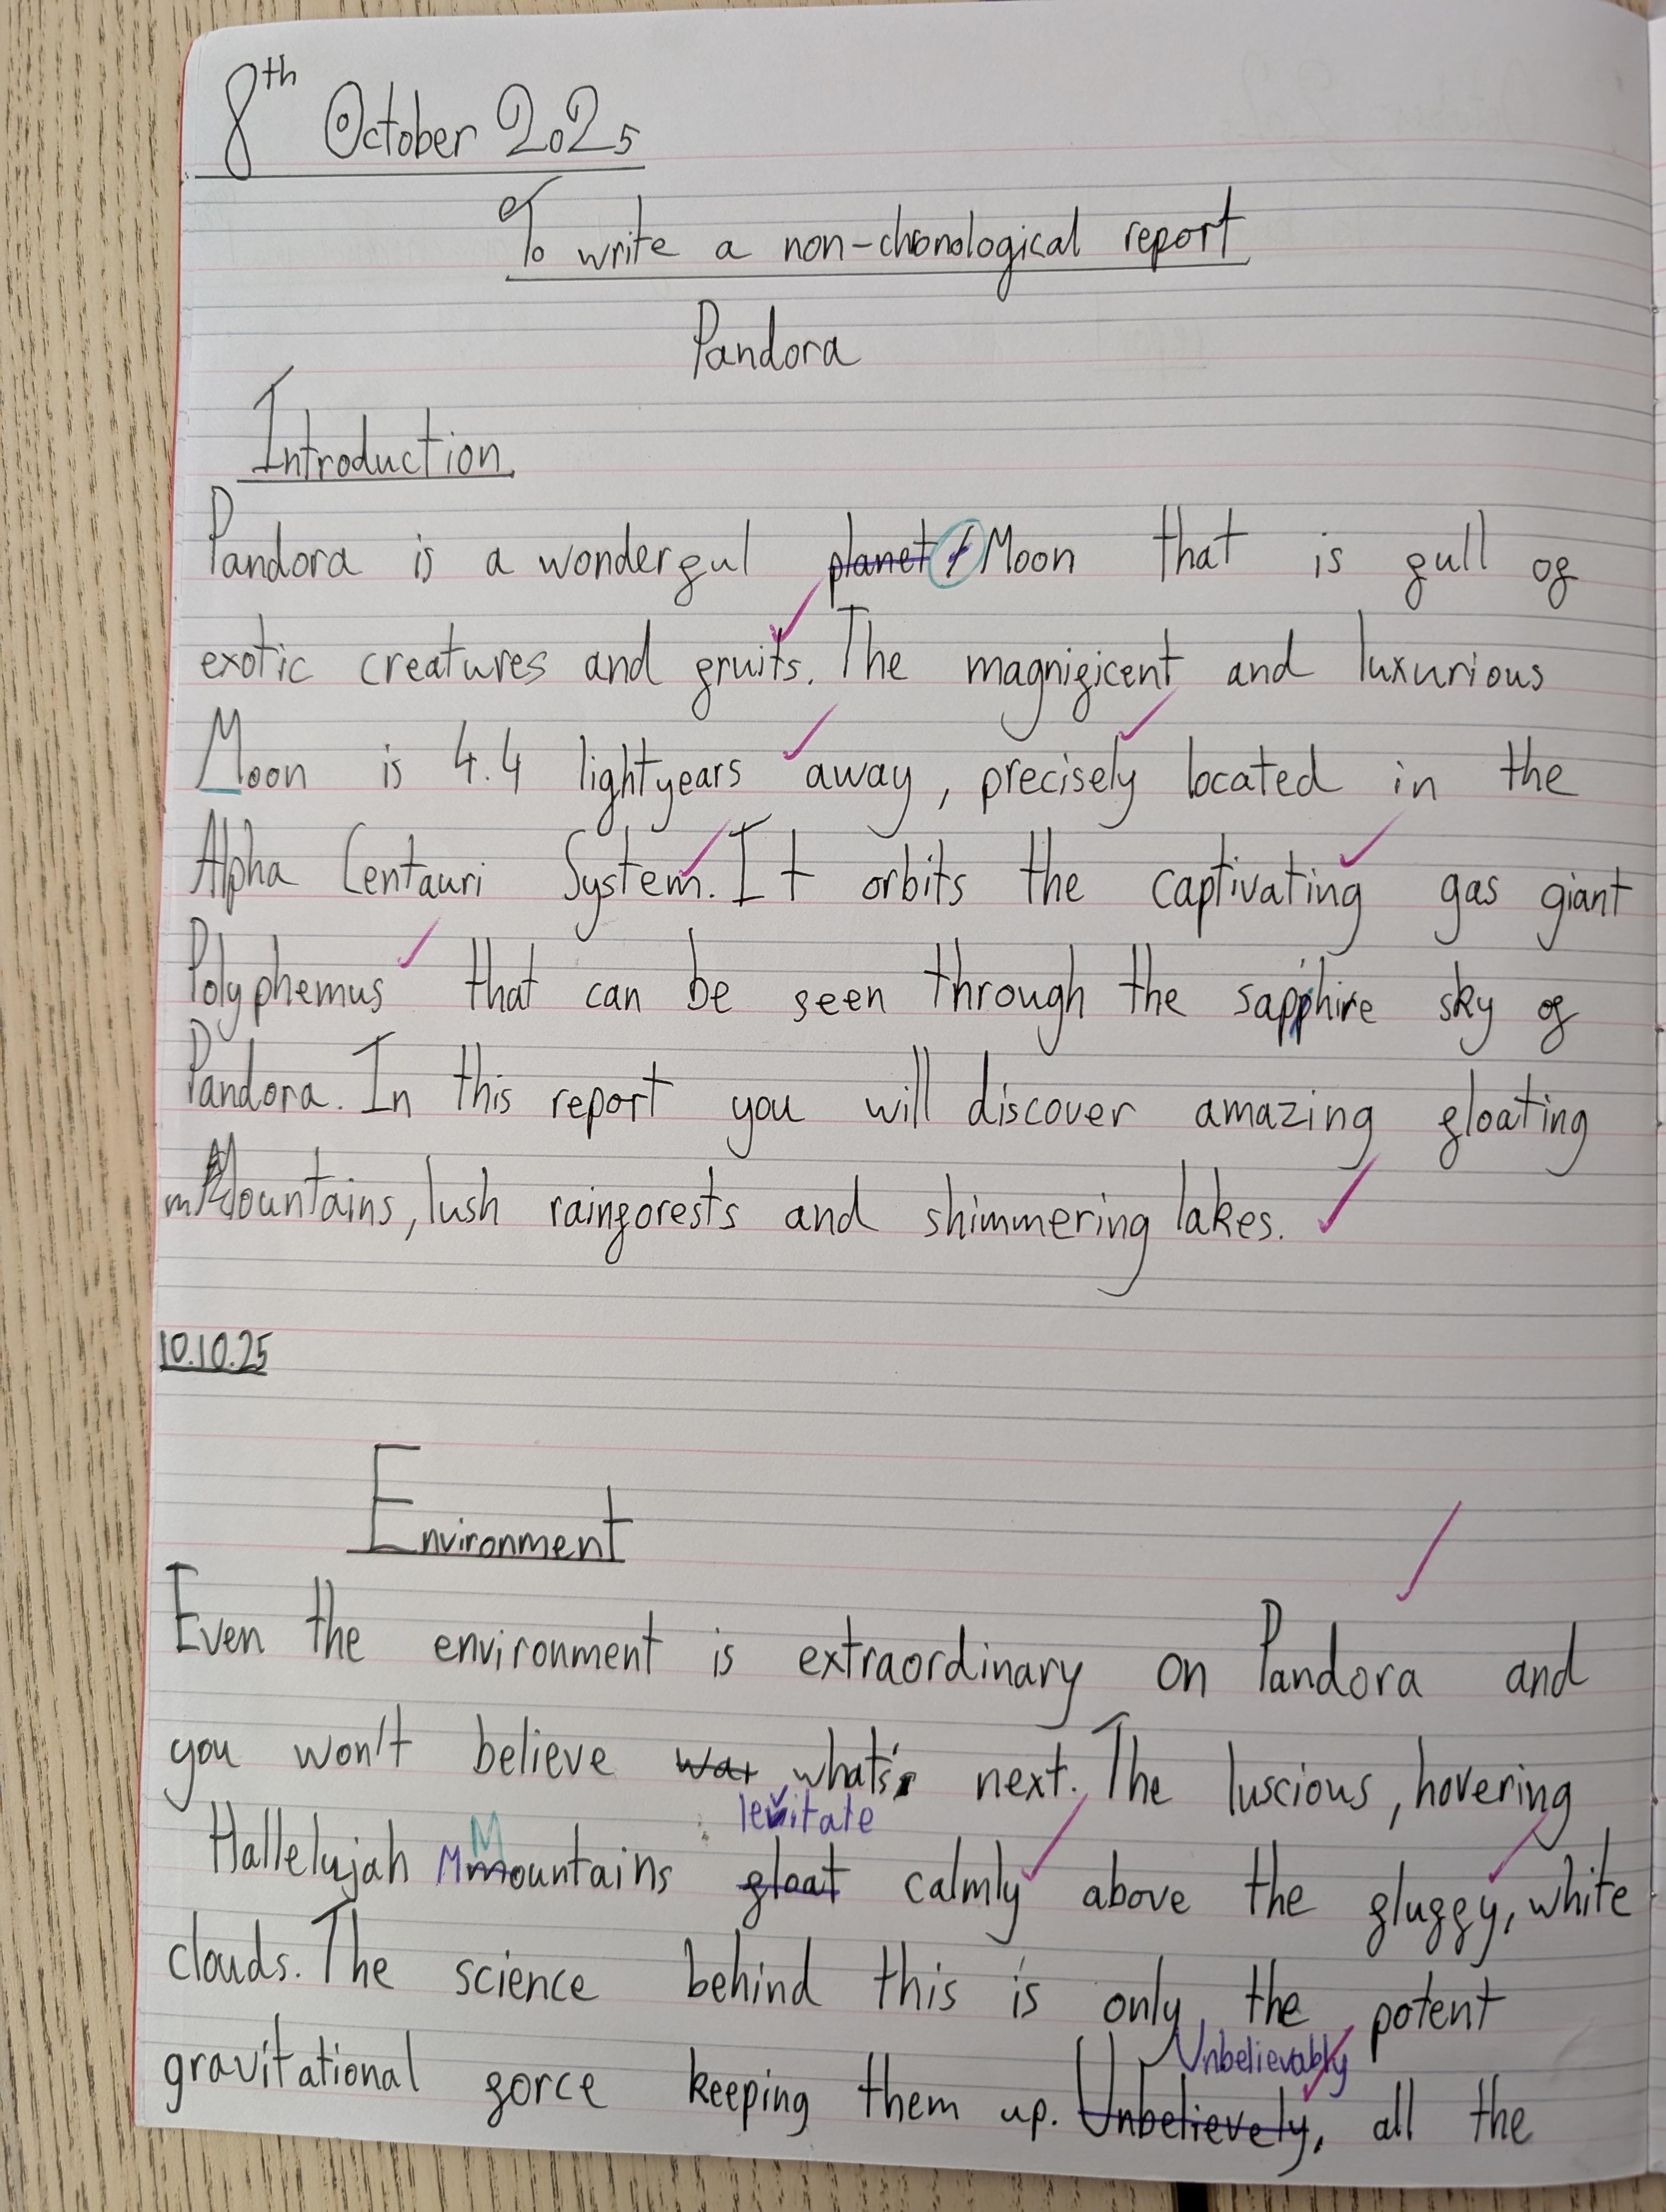 8th October 2025
To write a non-chronological report
Pandora
Introduction
Pandora is a wonderful planet / Moon that is full of
exotic creatures and fruits. The magnificent and luxurious
Moon is 4.4 lightyears away, precisely located in the
Alpha Centauri System. It orbits the captivating gas giant
Polyphemus that can be seen through the sapphire sky of
Pandora. In this report you will discover amazing floating
mountains, lush rainforests and shimmering lakes.
10.10.25
Environment
Even the environment is extraordinary on Pandora and
you won't believe wat what's next. The luscious, hovering
levitate
Hallelujah Mountains float calmly above the fluffy, white
clouds. The science behind this is only the potent
Unbelievably
gravitational force keeping them up. Unbelievely, all the